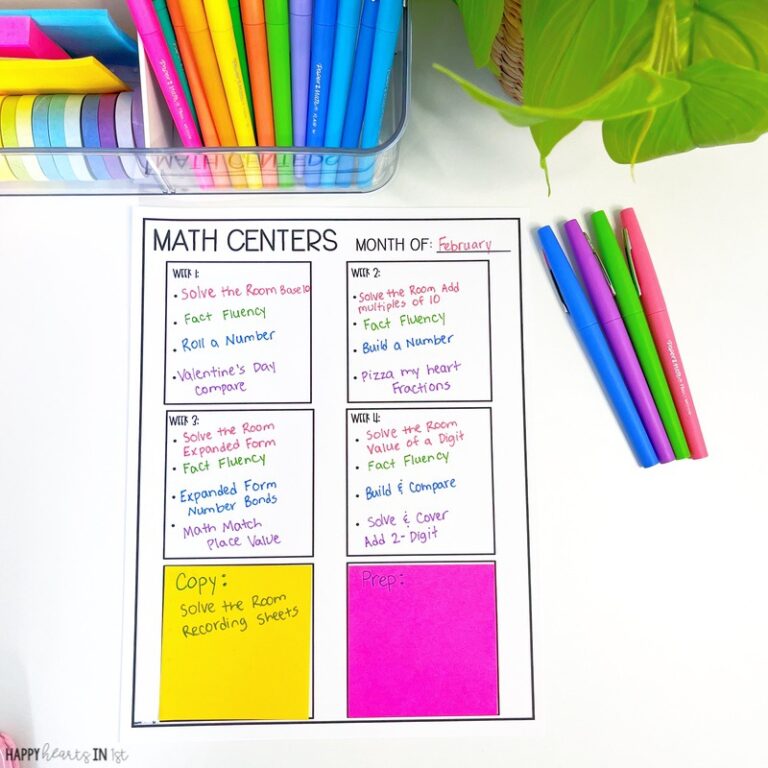 MATH CENTERS
MATH CENTERS
MONTH OF: February
WEEK 1:
• Solve the Room Base 10
• Fact Fluency
• Roll a Number
• Valentine's Day
Compare
WEEK 2:
• Solve the Room Add
multiples of 10
• Fact Fluency
• Build a Number
• Pizza my heart
Fractions
WEEK 3:
• Solve the Room
Expanded Form
• Fact Fluency
• Expanded Form
Number Bonds
• Math Match
Place Value
WEEK 4:
• Solve the Room
Value of a Digit
• Fact Fluency
• Build & Compare
• Solve & Cover
Add 2-Digit
Copy:
Solve the Room
Recording Sheets
Prep:
Paper Mate
HAPPY hearts IN 1st